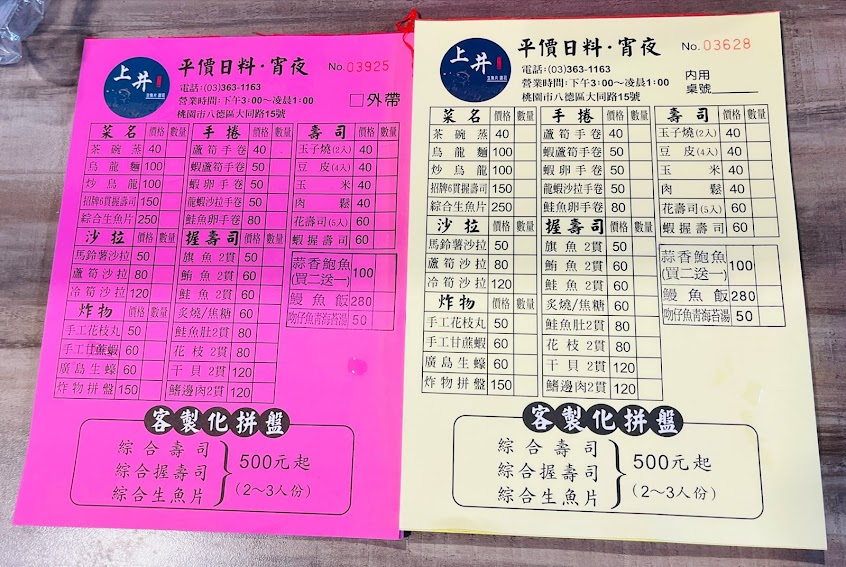 上井
平價日料·宵夜
No.03925
電話:(03)363-1163
營業時間:下午3:00～凌晨1:00
桃園市八德區大同路15號
□外帶
菜名 價格 數量
茶碗蒸 40
烏龍麵 100
炒烏龍 100
招牌6貫握壽司 150
綜合生魚片 250
沙拉 價格 數量
馬鈴薯沙拉 50
蘆筍沙拉 80
冷筍沙拉 120
炸物 價格 數量
手工花枝丸 50
手工甘蔗蝦 60
廣島生蠔 60
炸物拼盤 150
手捲 價格 數量
蘆筍手卷 40
蝦蘆筍手卷 50
蝦卵手卷 50
龍蝦沙拉手卷 50
鮭魚卵手卷 80
握壽司 價格 數量
旗魚2貫 50
鮪魚2貫 60
鮭魚2貫 60
炙燒/焦糖 60
鮭魚肚2貫 80
花枝2貫 80
干貝2貫 120
鰭邊肉2貫 120
壽司 價格 數量
玉子燒(2入) 40
豆皮(4入) 40
玉米 40
肉鬆 40
花壽司(5入) 60
蝦握壽司 60
蒜香鮑魚
(買二送一) 100
鰻魚飯 280
吻仔魚青海苔湯 50
客製化拼盤
綜合壽司
綜合握壽司
綜合生魚片
500元起
(2～3人份)
上井
平價日料·宵夜
No.03628
電話:(03)363-1163
營業時間:下午3:00～凌晨1:00
桃園市八德區大同路15號
內用
桌號
菜名 價格 數量
茶碗蒸 40
烏龍麵 100
炒烏龍 100
招牌6貫握壽司 150
綜合生魚片 200
沙拉 價格 數量
馬鈴薯沙拉 50
蘆筍沙拉 80
冷筍沙拉 120
炸物 價格 數量
手工花枝丸 50
手工甘蔗蝦 60
廣島生蠔 60
炸物拼盤 150
手捲 價格 數量
蘆筍手卷 40
蝦蘆筍手卷 50
蝦卵手卷 50
龍蝦沙拉手卷 50
鮭魚卵手卷 80
握壽司 價格 數量
旗魚2貫 50
鮪魚2貫 60
鮭魚2貫 60
炙燒/焦糖 60
鮭魚肚2貫 80
花枝2貫 80
干貝2貫 120
鰭邊肉2貫 120
壽司 價格 數量
玉子燒(2入) 40
豆皮(4入) 40
玉米 40
肉鬆 40
花壽司(5入) 60
蝦握壽司 60
蒜香鮑魚
(買二送一) 100
鰻魚飯 280
吻仔魚青海苔湯 50
客製化拼盤
綜合壽司
綜合握壽司
綜合生魚片
500元起
(2～3人份)